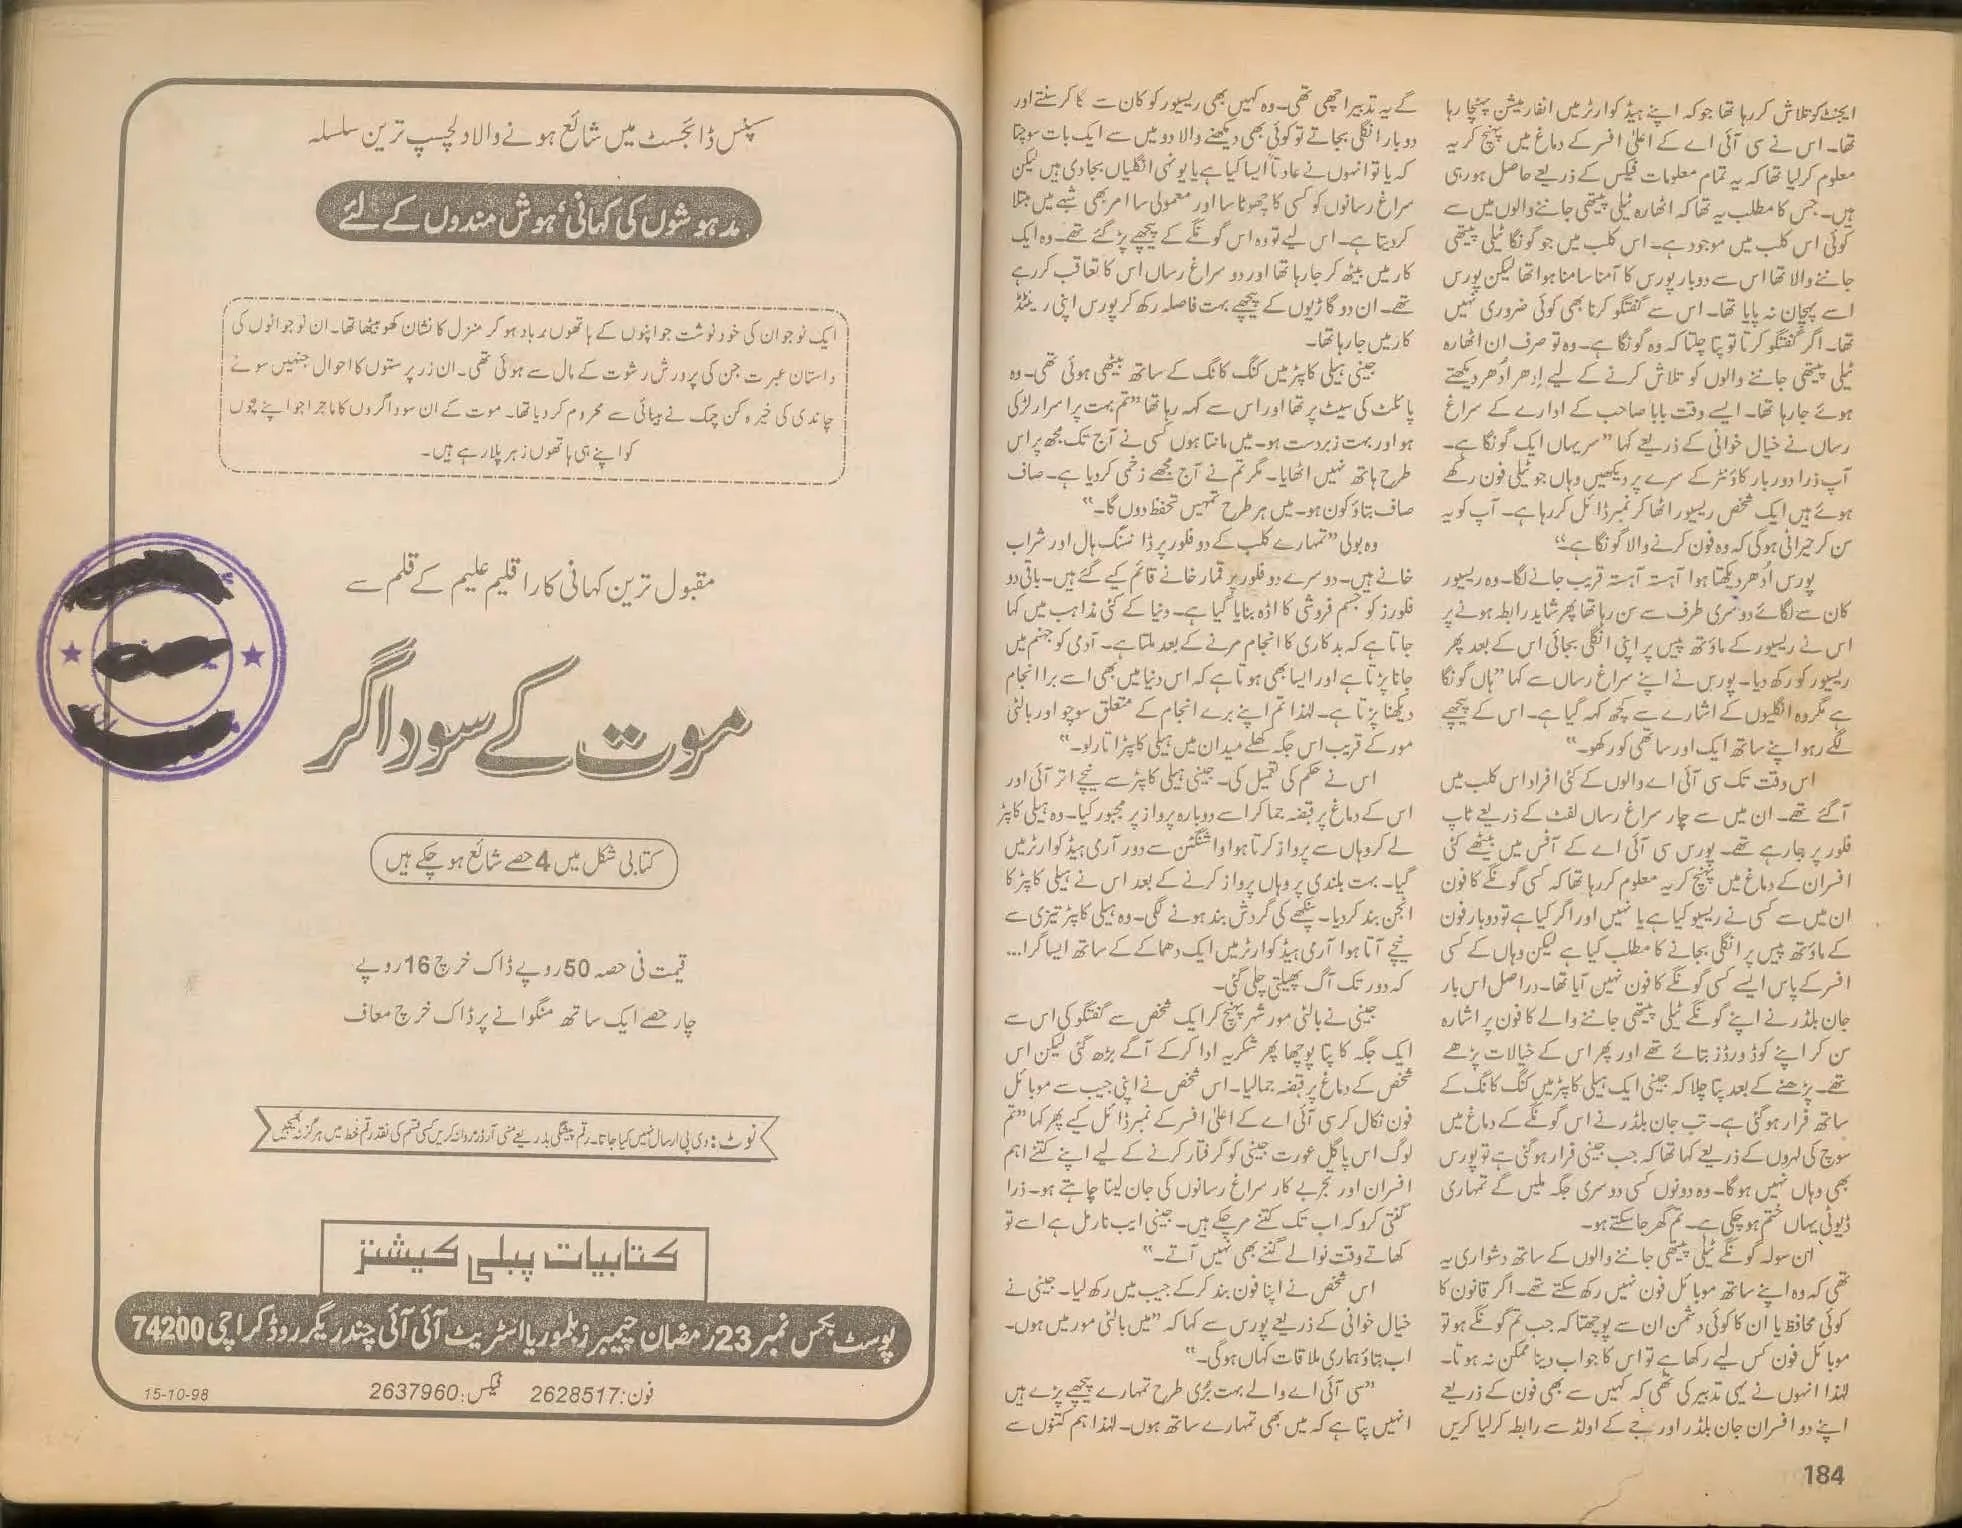 ایجنٹ کو تلاش کر رہا تھا جو کہ اپنے ہیڈ کوارٹر میں انفارمیشن پہنچا رہا
تھا۔ اس نے سی آئی اے کے اعلیٰ افسر کے دماغ میں پہنچ کر یہ
معلوم کر لیا تھا کہ یہ تمام معلومات فیکس کے ذریعے حاصل ہو رہی
ہیں۔ جس کا مطلب یہ تھا کہ اٹھارہ ٹیلی پیتھی جاننے والوں میں سے
کوئی اس کلب میں موجود ہے۔ اس کلب میں جو گونگا ٹیلی پیتھی
جاننے والا تھا اس سے دو بار پورس کا آمنا سامنا ہوا تھا لیکن پورس
اسے پہچان نہ پایا تھا۔ اس سے گفتگو کرنا بھی کوئی ضروری نہیں
تھا۔ اگر گفتگو کرتا تو پتا چلتا کہ وہ گونگا ہے۔ وہ تو صرف ان اٹھارہ
ٹیلی پیتھی جاننے والوں کو تلاش کرنے کے لیے اِدھر اُدھر دیکھتے
ہوئے جا رہا تھا۔ ایسے وقت بابا صاحب کے ادارے کے سراغ
رساں نے خیال خوانی کے ذریعے کہا "سر یہاں ایک گونگا ہے۔
آپ ذرا دور بار کاؤنٹر کے سرے پر دیکھیں وہاں جو ٹیلی فون رکھے
ہوئے ہیں ایک شخص ریسیور اٹھا کر نمبر ڈائل کر رہا ہے۔ آپ کو یہ
سن کر حیرانی ہوگی کہ وہ فون کرنے والا گونگا ہے۔"
پورس اُدھر دیکھتا ہوا آہستہ آہستہ قریب جانے لگا۔ وہ ریسیور
کان سے لگائے دوسری طرف سے سن رہا تھا پھر شاید رابطہ ہونے پر
اس نے ریسیور کے ماؤتھ پیس پر اپنی انگلی بجائی اس کے بعد پھر
ریسیور کو رکھ دیا۔ پورس نے اپنے سراغ رساں سے کہا "ہاں گونگا
ہے مگر وہ انگلیوں کے اشارے سے کچھ کہہ گیا ہے۔ اس کے پیچھے
لگے رہو اپنے ساتھ ایک اور ساتھی کو رکھو۔"
اس وقت تک سی آئی اے والوں کے کئی افراد اس کلب میں
آ گئے تھے۔ ان میں سے چار سراغ رساں لفٹ کے ذریعے ٹاپ
فلور پر جا رہے تھے۔ پورس سی آئی اے کے آفس میں بیٹھے کئی
افسران کے دماغ میں پہنچ کر یہ معلوم کر رہا تھا کہ کسی گونگے کا فون
ان میں سے کسی نے ریسیو کیا ہے یا نہیں اور اگر کیا ہے تو دوبار فون
کے ماؤتھ پیس پر انگلی بجانے کا مطلب کیا ہے لیکن وہاں کے کسی
افسر کے پاس ایسے کسی گونگے کا فون نہیں آیا تھا۔ دراصل اس بار
جان بلڈر نے اپنے گونگے ٹیلی پیتھی جاننے والے کا فون پر اشارہ
سن کر اپنے کوڈ ورڈز بتائے تھے اور پھر اس کے خیالات پڑھے
تھے۔ پڑھنے کے بعد پتا چلا کہ جینی ایک ہیلی کاپٹر میں کنگ کانگ کے
ساتھ فرار ہوگئی ہے۔ تب جان بلڈر نے اس گونگے کے دماغ میں
سوچ کی لہروں کے ذریعے کہا تھا کہ جب جینی فرار ہوگئی ہے تو پورس
بھی وہاں نہیں ہوگا۔ وہ دونوں کسی دوسری جگہ ملیں گے تمہاری
ڈیوٹی یہاں ختم ہو چکی ہے۔ تم گھر جا سکتے ہو۔
ان سولہ گونگے ٹیلی پیتھی جاننے والوں کے ساتھ دشواری یہ
تھی کہ وہ اپنے ساتھ موبائل فون نہیں رکھ سکتے تھے۔ اگر قانون کا
کوئی محافظ یا ان کا کوئی دشمن ان سے پوچھتا کہ جب تم گونگے ہو تو
موبائل فون کس لیے رکھا ہے تو اس کا جواب دینا ممکن نہ ہوتا۔
لہٰذا انہوں نے یہی تدبیر کی تھی کہ کہیں سے بھی فون کے ذریعے
اپنے دو افسران جان بلڈر اور جے کے اولڈ سے رابطہ کر لیا کریں
184
گے یہ تدبیر اچھی تھی۔ وہ کہیں بھی ریسیور کو کان سے لگا کر سنتے اور
دوبار انگلی بجاتے تو کوئی بھی دیکھنے والا دو میں سے ایک بات سوچتا
کہ یا تو انہوں نے عادتاً ایسا کیا ہے یا یونہی انگلیاں بجا دی ہیں لیکن
سراغ رسانوں کو کسی کا چھوٹا سا اور معمولی سا امر بھی شبے میں مبتلا
کر دیتا ہے۔ اس لیے تو وہ اس گونگے کے پیچھے پڑ گئے تھے۔ وہ ایک
کار میں بیٹھ کر جا رہا تھا اور دو سراغ رساں اس کا تعاقب کر رہے
تھے۔ ان دو گاڑیوں کے پیچھے بہت فاصلہ رکھ کر پورس اپنی رینٹڈ
کار میں جا رہا تھا۔
جینی ہیلی کاپٹر میں کنگ کانگ کے ساتھ بیٹھی ہوئی تھی۔ وہ
پائلٹ کی سیٹ پر تھا اور اس سے کہہ رہا تھا "تم بہت پراسرار لڑکی
ہو اور بہت زبردست ہو۔ میں مانتا ہوں کسی نے آج تک مجھ پر اس
طرح ہاتھ نہیں اٹھایا۔ مگر تم نے آج مجھے زخمی کر دیا ہے۔ صاف
صاف بتاؤ کون ہو۔ میں ہر طرح تمہیں تحفظ دوں گا۔"
وہ بولی "تمہارے کلب کے دو فلور پر ڈانسنگ ہال اور شراب
خانے ہیں۔ دوسرے دو فلور پر قمار خانے قائم کیے گئے ہیں۔ باقی دو
فلورز کو جسم فروشی کا اڈہ بنایا گیا ہے۔ دنیا کے کئی مذاہب میں کہا
جاتا ہے کہ بدکاری کا انجام مرنے کے بعد ملتا ہے۔ آدمی کو جہنم میں
جانا پڑتا ہے اور ایسا بھی ہوتا ہے کہ اس دنیا میں بھی اسے برا انجام
دیکھنا پڑتا ہے۔ لہٰذا تم اپنے برے انجام کے متعلق سوچو اور بالٹی
مور کے قریب اس جگہ کھلے میدان میں ہیلی کاپٹر اتار لو۔"
اس نے حکم کی تعمیل کی۔ جینی ہیلی کاپٹر سے نیچے اتر آئی اور
اس کے دماغ پر قبضہ جما کر اسے دوبارہ پرواز پر مجبور کیا۔ وہ ہیلی کاپٹر
لے کر وہاں سے پرواز کرتا ہوا واشنگٹن سے دور آرمی ہیڈ کوارٹر میں
گیا۔ بہت بلندی پر وہاں پرواز کرنے کے بعد اس نے ہیلی کاپٹر کا
انجن بند کر دیا۔ پنکھے کی گردش بند ہونے لگی۔ وہ ہیلی کاپٹر تیزی سے
نیچے آتا ہوا آرمی ہیڈ کوارٹر میں ایک دھماکے کے ساتھ ایسا گرا...
کہ دور تک آگ پھیلتی چلی گئی۔
جینی نے بالٹی مور شہر پہنچ کر ایک شخص سے گفتگو کی اس سے
ایک جگہ کا پتا پوچھا پھر شکریہ ادا کر کے آگے بڑھ گئی لیکن اس
شخص کے دماغ پر قبضہ جمالیا۔ اس شخص نے اپنی جیب سے موبائل
فون نکال کر سی آئی اے کے اعلیٰ افسر کے نمبر ڈائل کیے پھر کہا "تم
لوگ اس پاگل عورت جینی کو گرفتار کرنے کے لیے اپنے کتنے اہم
افسران اور تجربے کار سراغ رسانوں کی جان لینا چاہتے ہو۔ ذرا
گنتی کرو کہ اب تک کتنے مر چکے ہیں۔ جینی ایب نارمل ہے اسے تو
کھاتے وقت نوالے گننے بھی نہیں آتے۔"
اس شخص نے اپنا فون بند کر کے جیب میں رکھ لیا۔ جینی نے
خیال خوانی کے ذریعے پورس سے کہا کہ "میں بالٹی مور میں ہوں۔
اب بتاؤ ہماری ملاقات کہاں ہوگی۔"
"سی آئی اے والے بہت بُری طرح تمہارے پیچھے پڑے ہیں
انہیں پتا ہے کہ میں بھی تمہارے ساتھ ہوں۔ لہٰذا ہم کتنوں سے
سپنس ڈائجسٹ میں شائع ہونے والا دلچسپ ترین سلسلہ
مدہوشوں کی کہانی، ہوش مندوں کے لئے
ایک نوجوان کی خود نوشت جو اپنوں کے ہاتھوں برباد ہو کر منزل کا نشان کھو بیٹھا تھا۔ ان نوجوانوں کی
داستان عبرت جن کی پرورش رشوت کے مال سے ہوئی تھی۔ ان زر پرستوں کا احوال جنہیں سونے
چاندی کی خیرہ کن چمک نے بینائی سے محروم کر دیا تھا۔ موت کے ان سوداگروں کا ماجرا جو اپنے بچوں
کو اپنے ہی ہاتھوں زہر پلا رہے ہیں۔
مقبول ترین کہانی کار اقلیم علیم کے قلم سے
موت کے سوداگر
کتابی شکل میں 4 حصے شائع ہو چکے ہیں
قیمت فی حصہ 50 روپے ڈاک خرچ 16 روپے
چار حصے ایک ساتھ منگوانے پر ڈاک خرچ معاف
نوٹ: وی پی ارسال نہیں کیا جاتا۔ رقم پیشگی بذریعے منی آرڈر روانہ کریں کسی قسم کی نقد رقم خط میں ہرگز نہ بھیجیں
کتابیات پبلی کیشنز
پوسٹ بکس نمبر 23 رمضان چیمبرز بلموریا اسٹریٹ آئی آئی چندریگر روڈ کراچی 74200
فون: 2628517 فیکس: 2637960
15-10-98